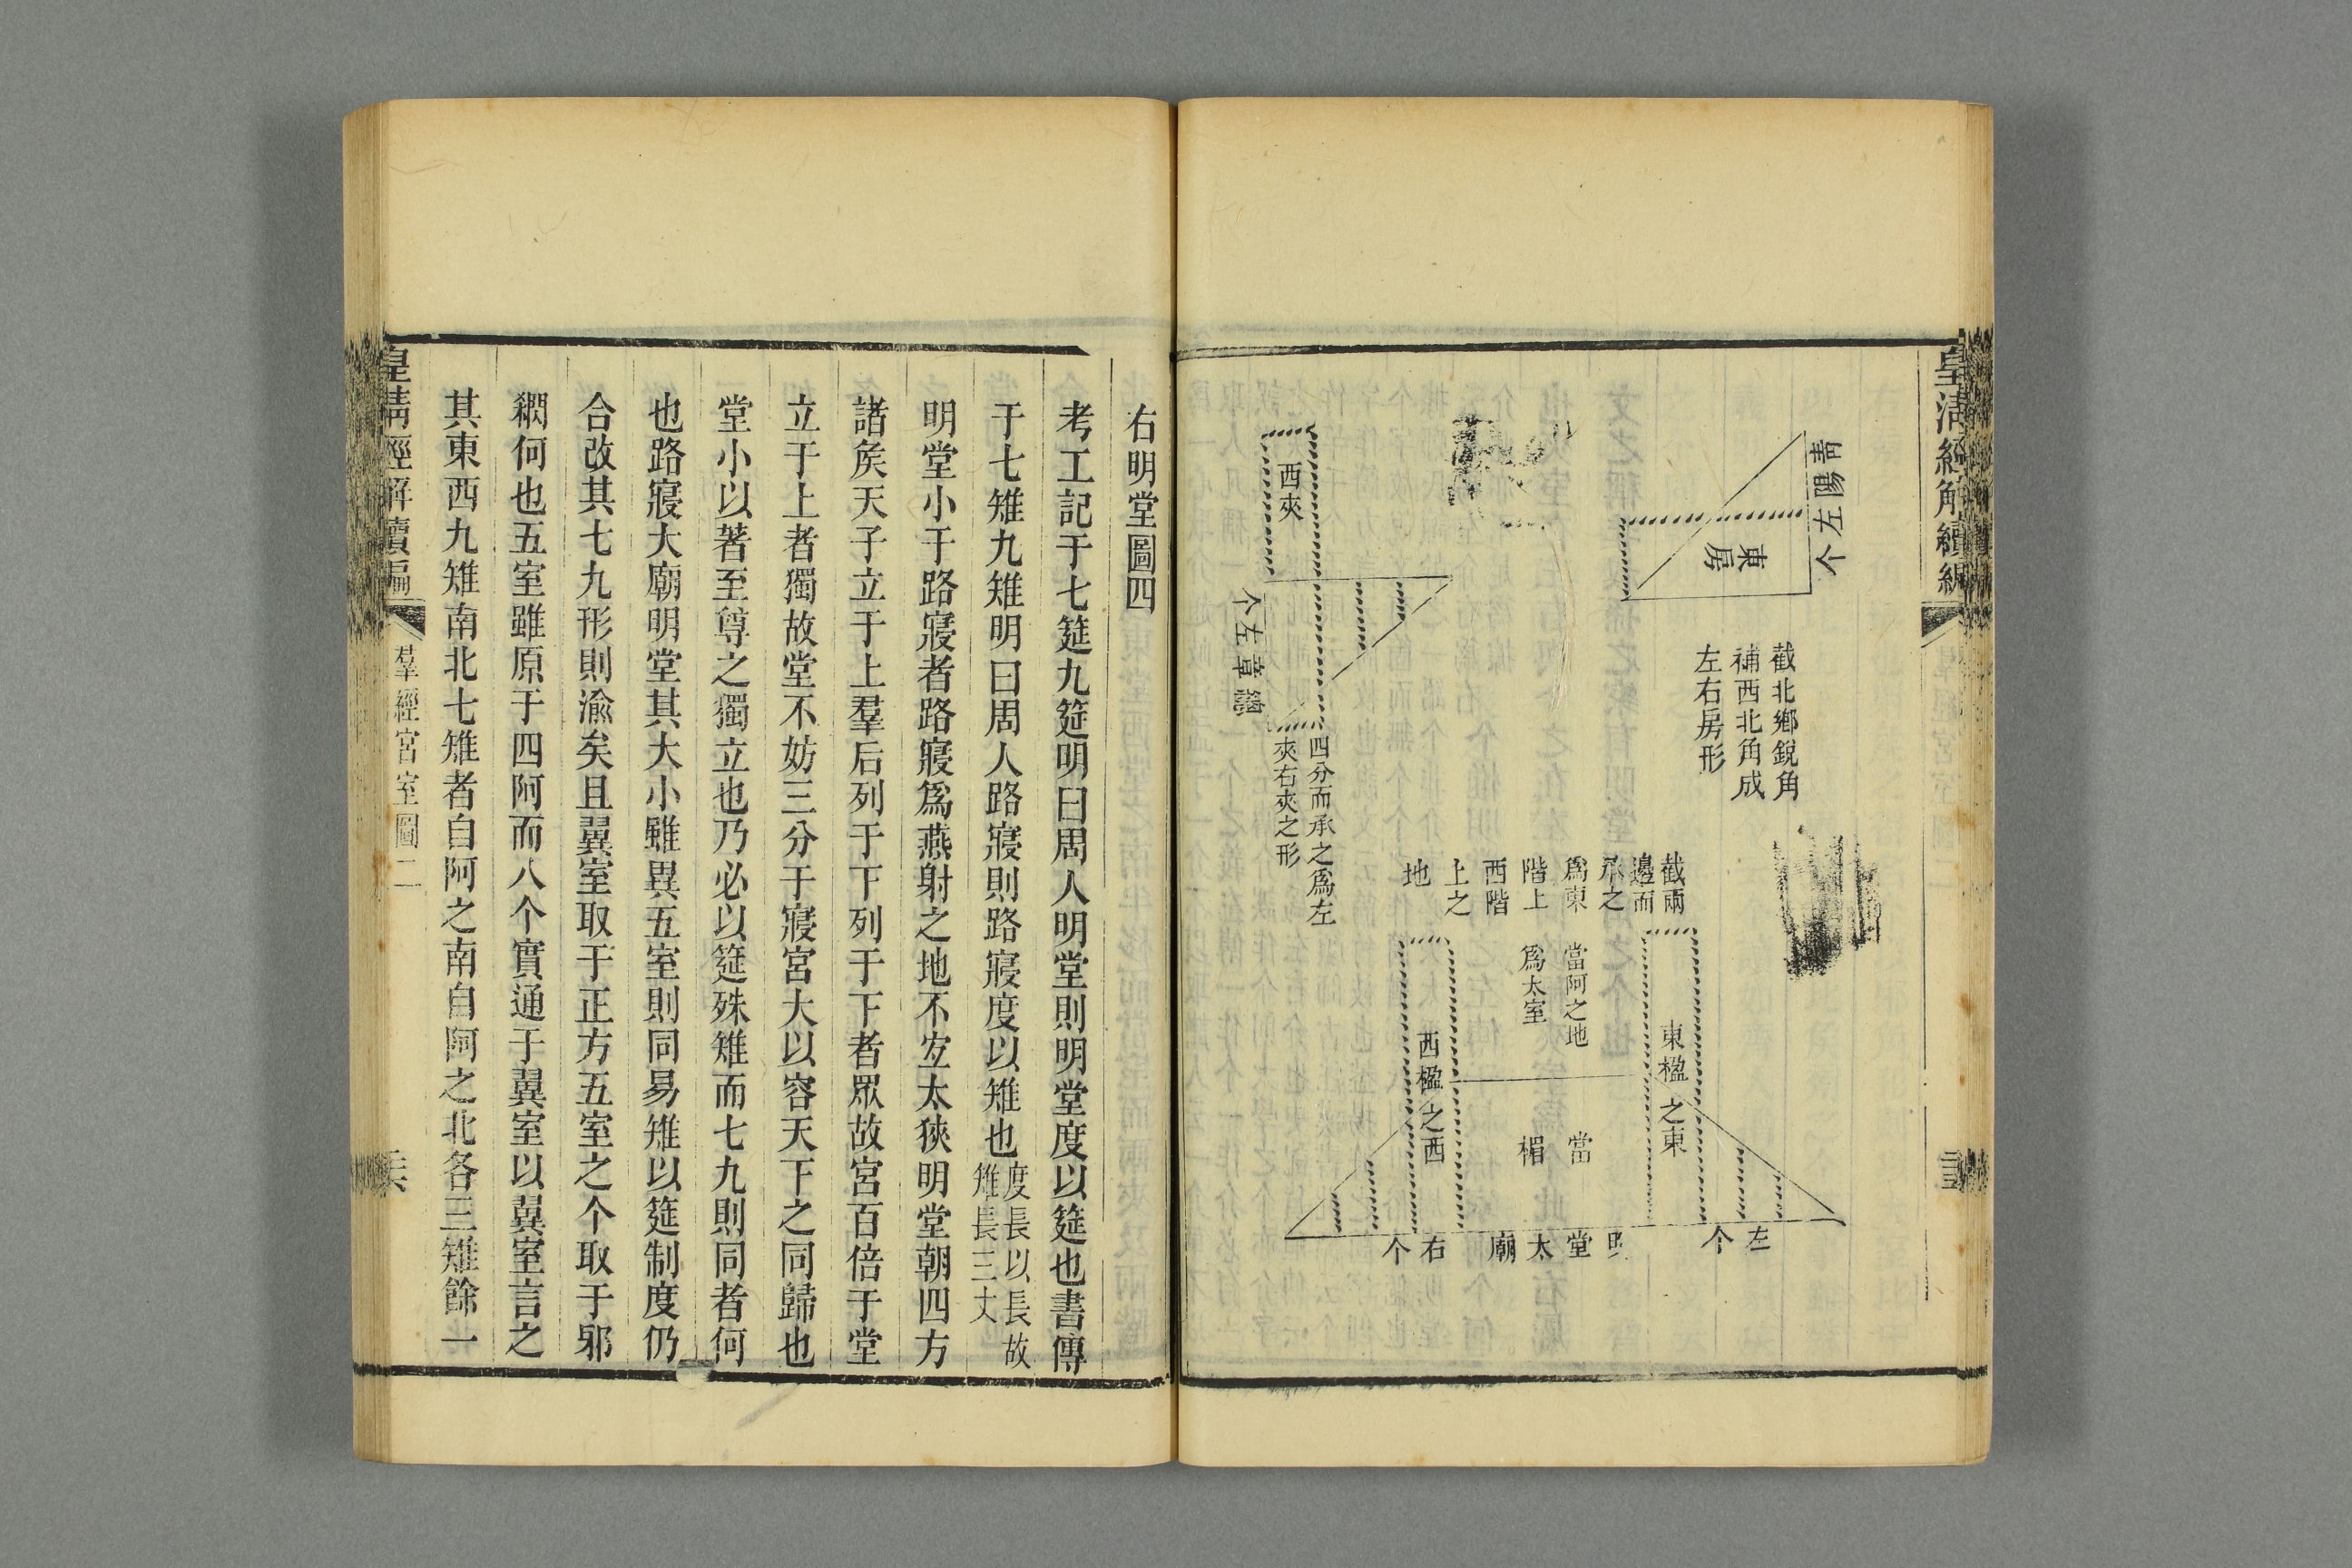 皇清經解續編
青陽左个
東房
截北鄉銳角
補西北角成
左右房形
西夾
總章左个
四分而承之爲左
夾右夾之形
截兩
邊而
承之
爲東
階上
西階
上之
地
當阿之地
爲太室
東楹之東
西楹之西
當
楣
左个
堂太廟
右个
右明堂圖四
考工記于七筵九筵明曰周人明堂則明堂度以筵也書傳
于七雉九雉明曰周人路寢則路寢度以雉也度長以長故
雉長三丈
明堂小于路寢者路寢爲燕射之地不宐太狹明堂朝四方
諸矦天子立于上羣后列于下列于下者眾故宮百倍于堂
立于上者獨故堂不妨三分于寢宮大以容天下之同歸也
堂小以著至尊之獨立也乃必以筵殊雉而七九則同者何
也路寢大廟明堂其大小雖異五室則同易雉以筵制度仍
合改其七九形則渝矣且翼室取于正方五室之个取于邪
網何也五室雖原于四阿而八个實通于翼室以翼室言之
其東西九雉南北七雉者自阿之南自阿之北各三雉餘一
皇清經解續編
羣經宮室圖二